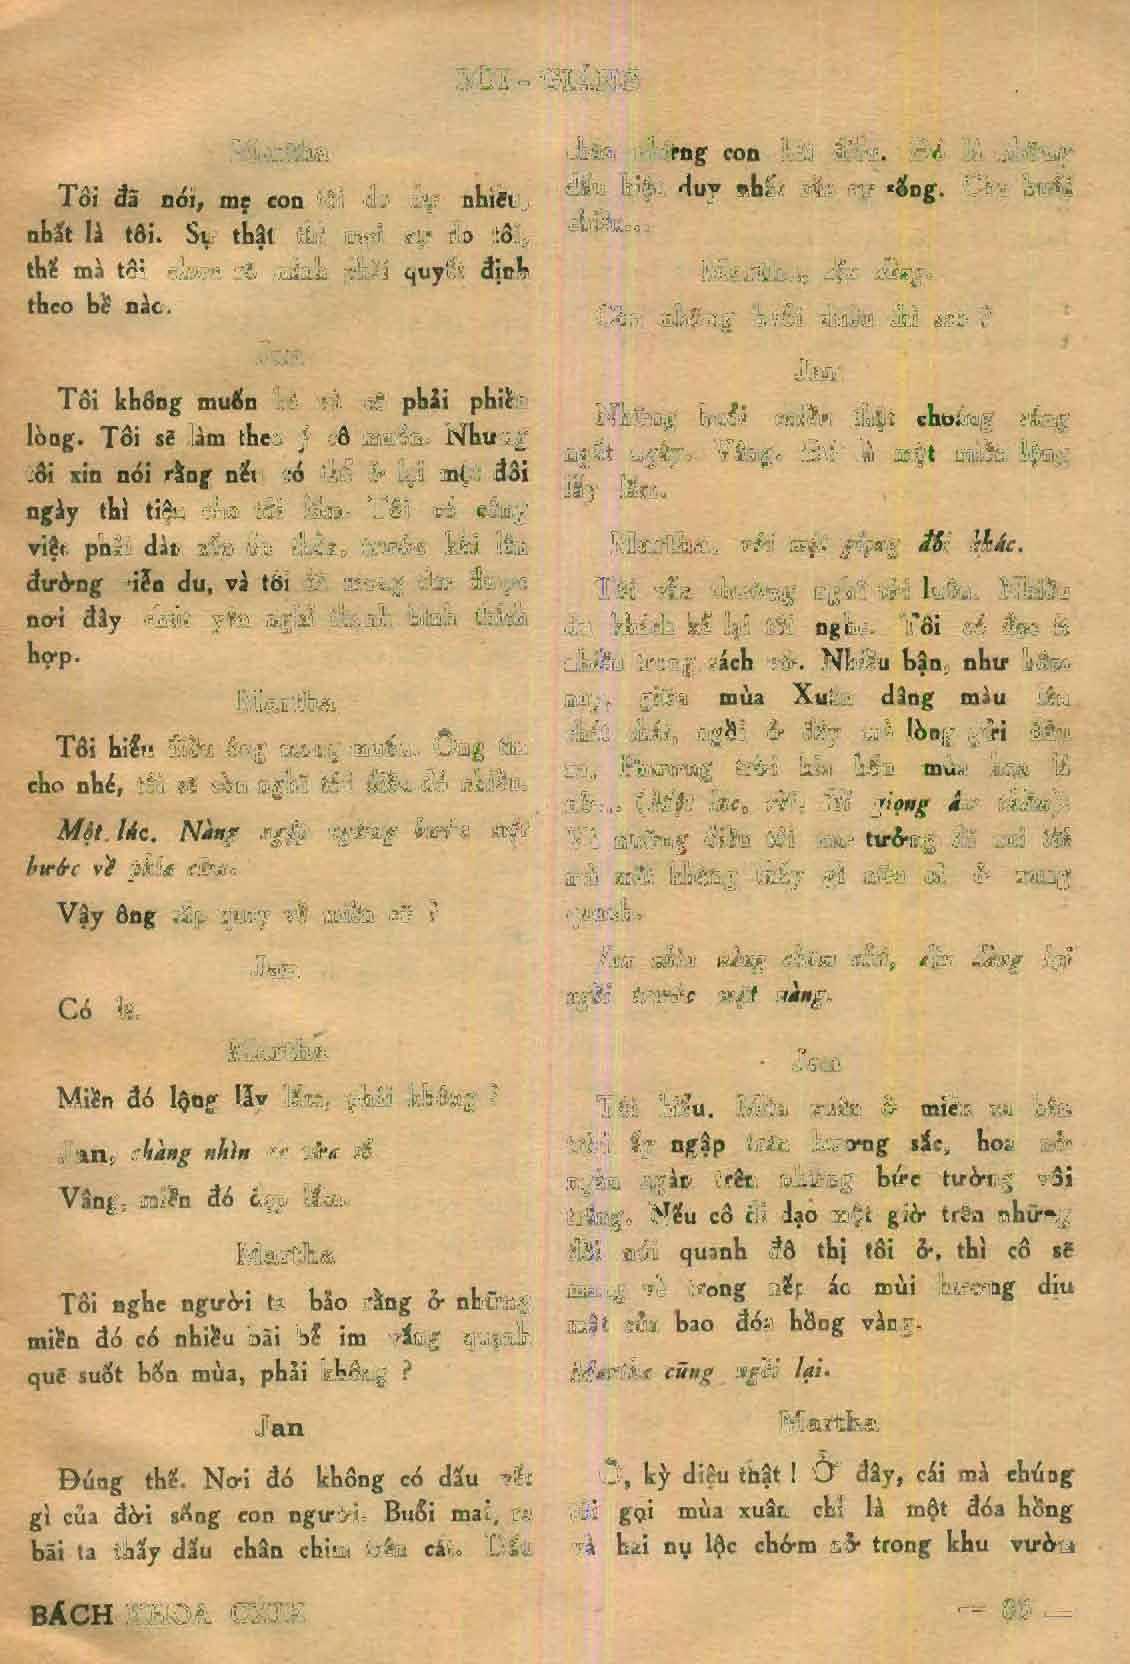 BÙI - GIÁNG
Martha
Tôi đã nói, mẹ con tôi do dự nhiều,
nhất là tôi. Sự thật thì mọi sự do tôi,
thế mà tôi chưa rõ mình phải quyết định
theo bề nào.
Jan
Tôi không muốn bà và cô phải phiền
lòng. Tôi sẽ làm theo ý cô muốn. Nhưng
tôi xin nói rằng nếu có thể ở lại một đôi
ngày thì tiện cho tôi lắm. Tôi có công
việc phải dàn xếp ổn thỏa, trước khi lên
đường viễn du, và tôi đã mong tìm được
nơi đây chút yên nghỉ thanh bình thích
hợp.
Martha
Tôi hiểu điều ông mong muốn. Ông tin
cho nhé, tôi sẽ còn nghĩ tới điều đó nhiều.
Một lúc. Nàng ngập ngừng bước một
bước về phía cửa.
Vậy ông sắp quay về miền cũ ?
Jan
Có lẽ.
Martha
Miền đó lộng lẫy lắm, phải không ?
Jan, chàng nhìn ra cửa sổ
Vâng, miền đó đẹp lắm.
Martha
Tôi nghe người ta bảo rằng ở những
miền đó có nhiều bãi bể im vắng quạnh
quẽ suốt bốn mùa, phải không ?
Jan
Đúng thế. Nơi đó không có dấu vết
gì của đời sống con người. Buổi mai, ra
bãi ta thấy dấu chân chim trên cát. Dấu
chân những con hải điểu. Đó là những
dấu hiệu duy nhất của sự sống. Còn buổi
chiều...
Martha, dịu dàng.
Còn những buổi chiều thì sao ?
Jan
Những buổi chiều thật choáng váng
ngất ngây. Vâng. Đó là một miền lộng
lẫy lắm.
Martha, với một giọng đổi khác.
Tôi vẫn thường nghĩ tới luôn. Nhiều
du khách kể lại tôi nghe. Tôi có đọc ít
nhiều trong sách vở. Nhiều bận, như hôm
nay, giữa mùa Xuân dâng màu
chát chát, ngồi ở đây mà lòng gửi đâu
xa. Phương trời kia bốn mùa hoa lá
nở... (Một lúc, rồi, với giọng âm thầm)
Và những điều tôi mơ tưởng đã xui tôi
mù mắt không thấy gì nữa cả ở xung
quanh.
Jan nhìn nàng chăm chú, dịu dàng lại
ngồi trước mặt nàng.
Jan
Tôi hiểu. Mùa xuân ở miền xa bên
trời ấy ngập tràn hương sắc, hoa nở
ngàn ngàn trên những bức tường vôi
trắng. Nếu cô đi dạo một giờ trên những
đồi núi quanh đô thị tôi ở, thì cô sẽ
mang về trong nếp áo mùi hương dịu
mật của bao đóa hồng vàng.
Martha cũng ngồi lại.
Martha
Ồ, kỳ diệu thật ! Ở đây, cái mà chúng
tôi gọi mùa xuân chỉ là một đóa hồng
và hai nụ lộc chớm nở trong khu vườn
BÁCH KHOA CXIX
— 85 —